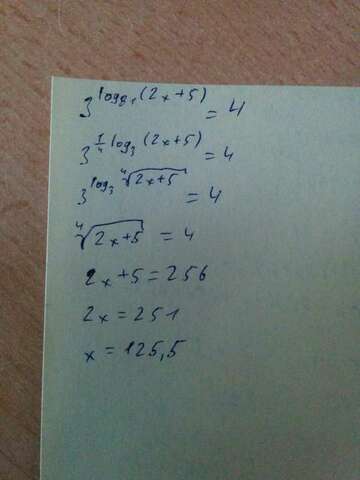 3^{log_{81}(2x+5)} = 4
3^{\frac{1}{4} log_3 (2x+5)} = 4
3^{log_3 \sqrt[4]{2x+5}} = 4
\sqrt[4]{2x+5} = 4
2x+5 = 256
2x = 251
x = 125,5